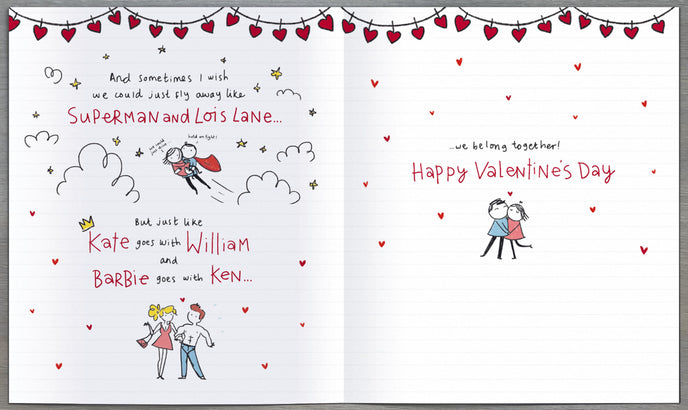 And sometimes I wish
we could just fly away like
SUPERMAN and LOIS LANE...
hold on tight!
But just like
Kate goes with William
and
BARBIE goes with KEN...
...we belong together!
HAPPY VALENTINE'S DAY